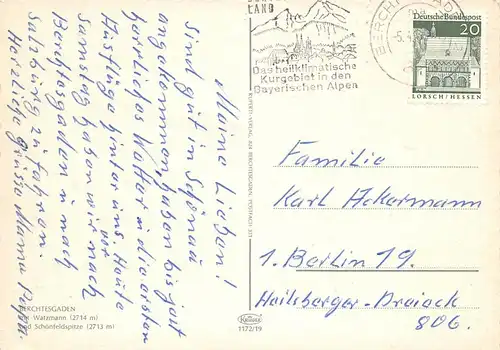 Meine Lieben!
Sind gut in Schönau
angekommen, haben bis jetzt
herrliches Wetter u. die ersten
Ausflüge hinter uns. Heute
Samstag haben wir vor
Berchtesgaden u. nach
Salzburg zu fahren.
Herzliche Grüsse Mama
BERCHTESGADEN
Watzmann (2714 m)
und Schönfeldspitze (2713 m)
1172/19
LAND
Das heilklimatische
Kurgebiet in den
Bayerischen Alpen
BERCHTESGADEN
Deutsche Bundespost
20
LORSCH/HESSEN
Familie
Karl Ackermann
1. Berlin 19.
Heilsberger-Dreieck
806.